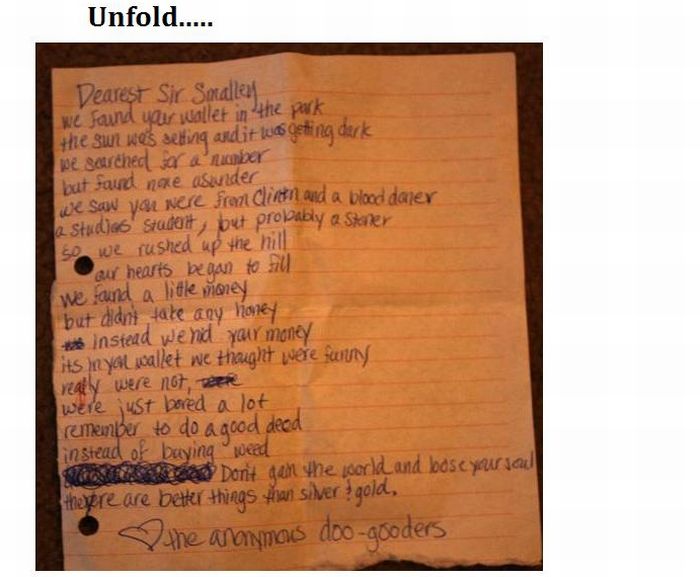 Unfold.....
Dearest Sir Smalley
we found your wallet in the park
the sun was setting and it was getting dark
we searched for a number
but found none asunder
we saw you were from Clinton and a blood doner
a studios student, but probably a stoner
so we rushed up the hill
our hearts began to fill
we found a little money
but didn't take any honey
instead we hid your money
its in you wallet we thought were funny
really were not,
were just bored a lot
remember to do a good deed
instead of buying weed
Don't gain the world and loose your soul
there are better things than silver & gold.
the anonymous doo-gooders